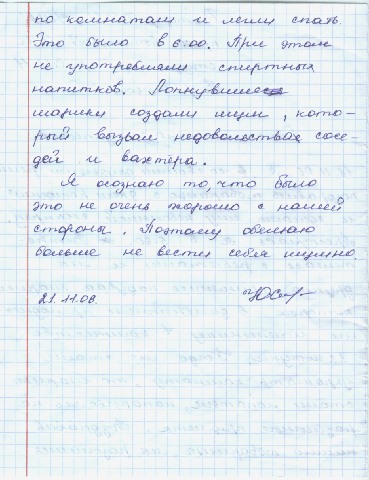 по комнатам и легли спать.
Это было в 6.00. При этом
не употребляли спиртных
напитков. Лопнувшие
шарики создали шум, кото-
рый вызвал недовольства сосе-
дей и вахтера.
Я осознаю то, что было
это не очень хорошо с нашей
стороны. Поэтому обещаю
больше не вести себя шумно.
21.11.08